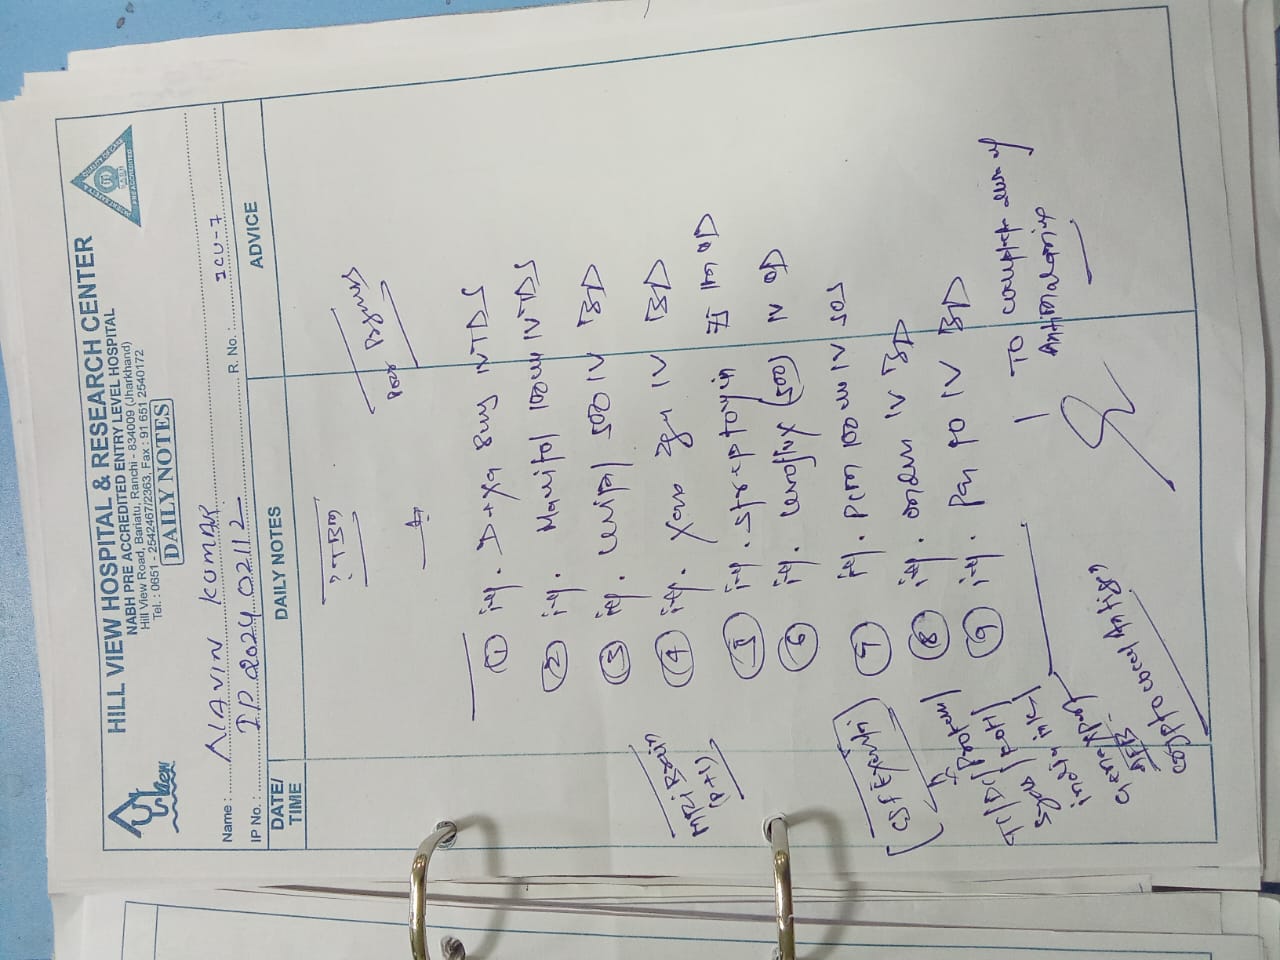 HILL VIEW HOSPITAL & RESEARCH CENTER
NABH PRE ACCREDITED ENTRY LEVEL HOSPITAL
Hill View Road, Bariatu, Ranchi - 834009 (Jharkhand)
Tel. : 0651 - 2542467/2363, Fax : 91 651 2540172
DAILY NOTES
Name : NAVIN KUMAR ICU-7
IP No. : IP 2024 02112 R. No. :
DATE/ TIME DAILY NOTES ADVICE
? TBM
Poor Prognosis
① inj. Dexa 8mg IV TDS
② inj. Manitol 100ml IV TDS
③ inj. 500 IV BD
MRI Brain
④ inj. Xone 2gm IV BD
⑤ inj. Streptomycin IM OD
⑥ inj. Levoflox (500) IV OD
⑦ inj. PCM 100ml IV SOS
⑧ inj. ondem IV BD
⑨ inj. Pan 40 IV BD
TO complete dose of
Antimalarial
[CSF
TC/DC/Protein/
Sugar/
india ink/
Gene Xpert
AFB
cryptococcal Antigen